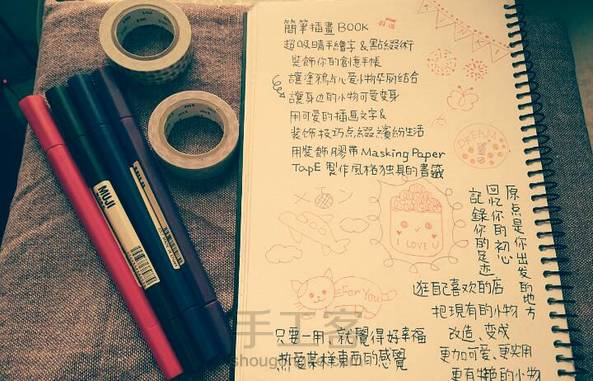 簡筆插畫BOOK
超吸睛手繪字&點綴術
裝飾你的創意手帳
讓塗鴉点心愛小物桼刷結合
讓身边的小物可愛变身
用可愛的插畫文字&
裝飾技巧点綴繽紛生活
用裝飾膠帶Masking Paper
TapE製作風格獨具的書籤
DREAM
I LOVE U
For You
原点是你出發的地方
回忆你的初心
記錄你的足迹
逛自己喜欢的店
把現有的小物
改造、变成
更加可愛、更実用
更有特色的小物
只要一用、就覺得好幸福
熱愛某样東西的感覺
MUJI
手工客